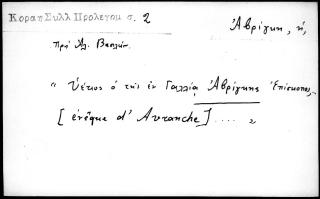 Κοραη Συλλ Προλεγομ σ. 2
Ἀβρίγκη, ἡ,
Πρὸ Ἀλ. Βασιλ.
" Ὑέτιος ὁ τῆς ἐν Γαλλίᾳ Ἀβρίγκης Ἐπίσκοπος,
[ évêque d' Avranche] .... "